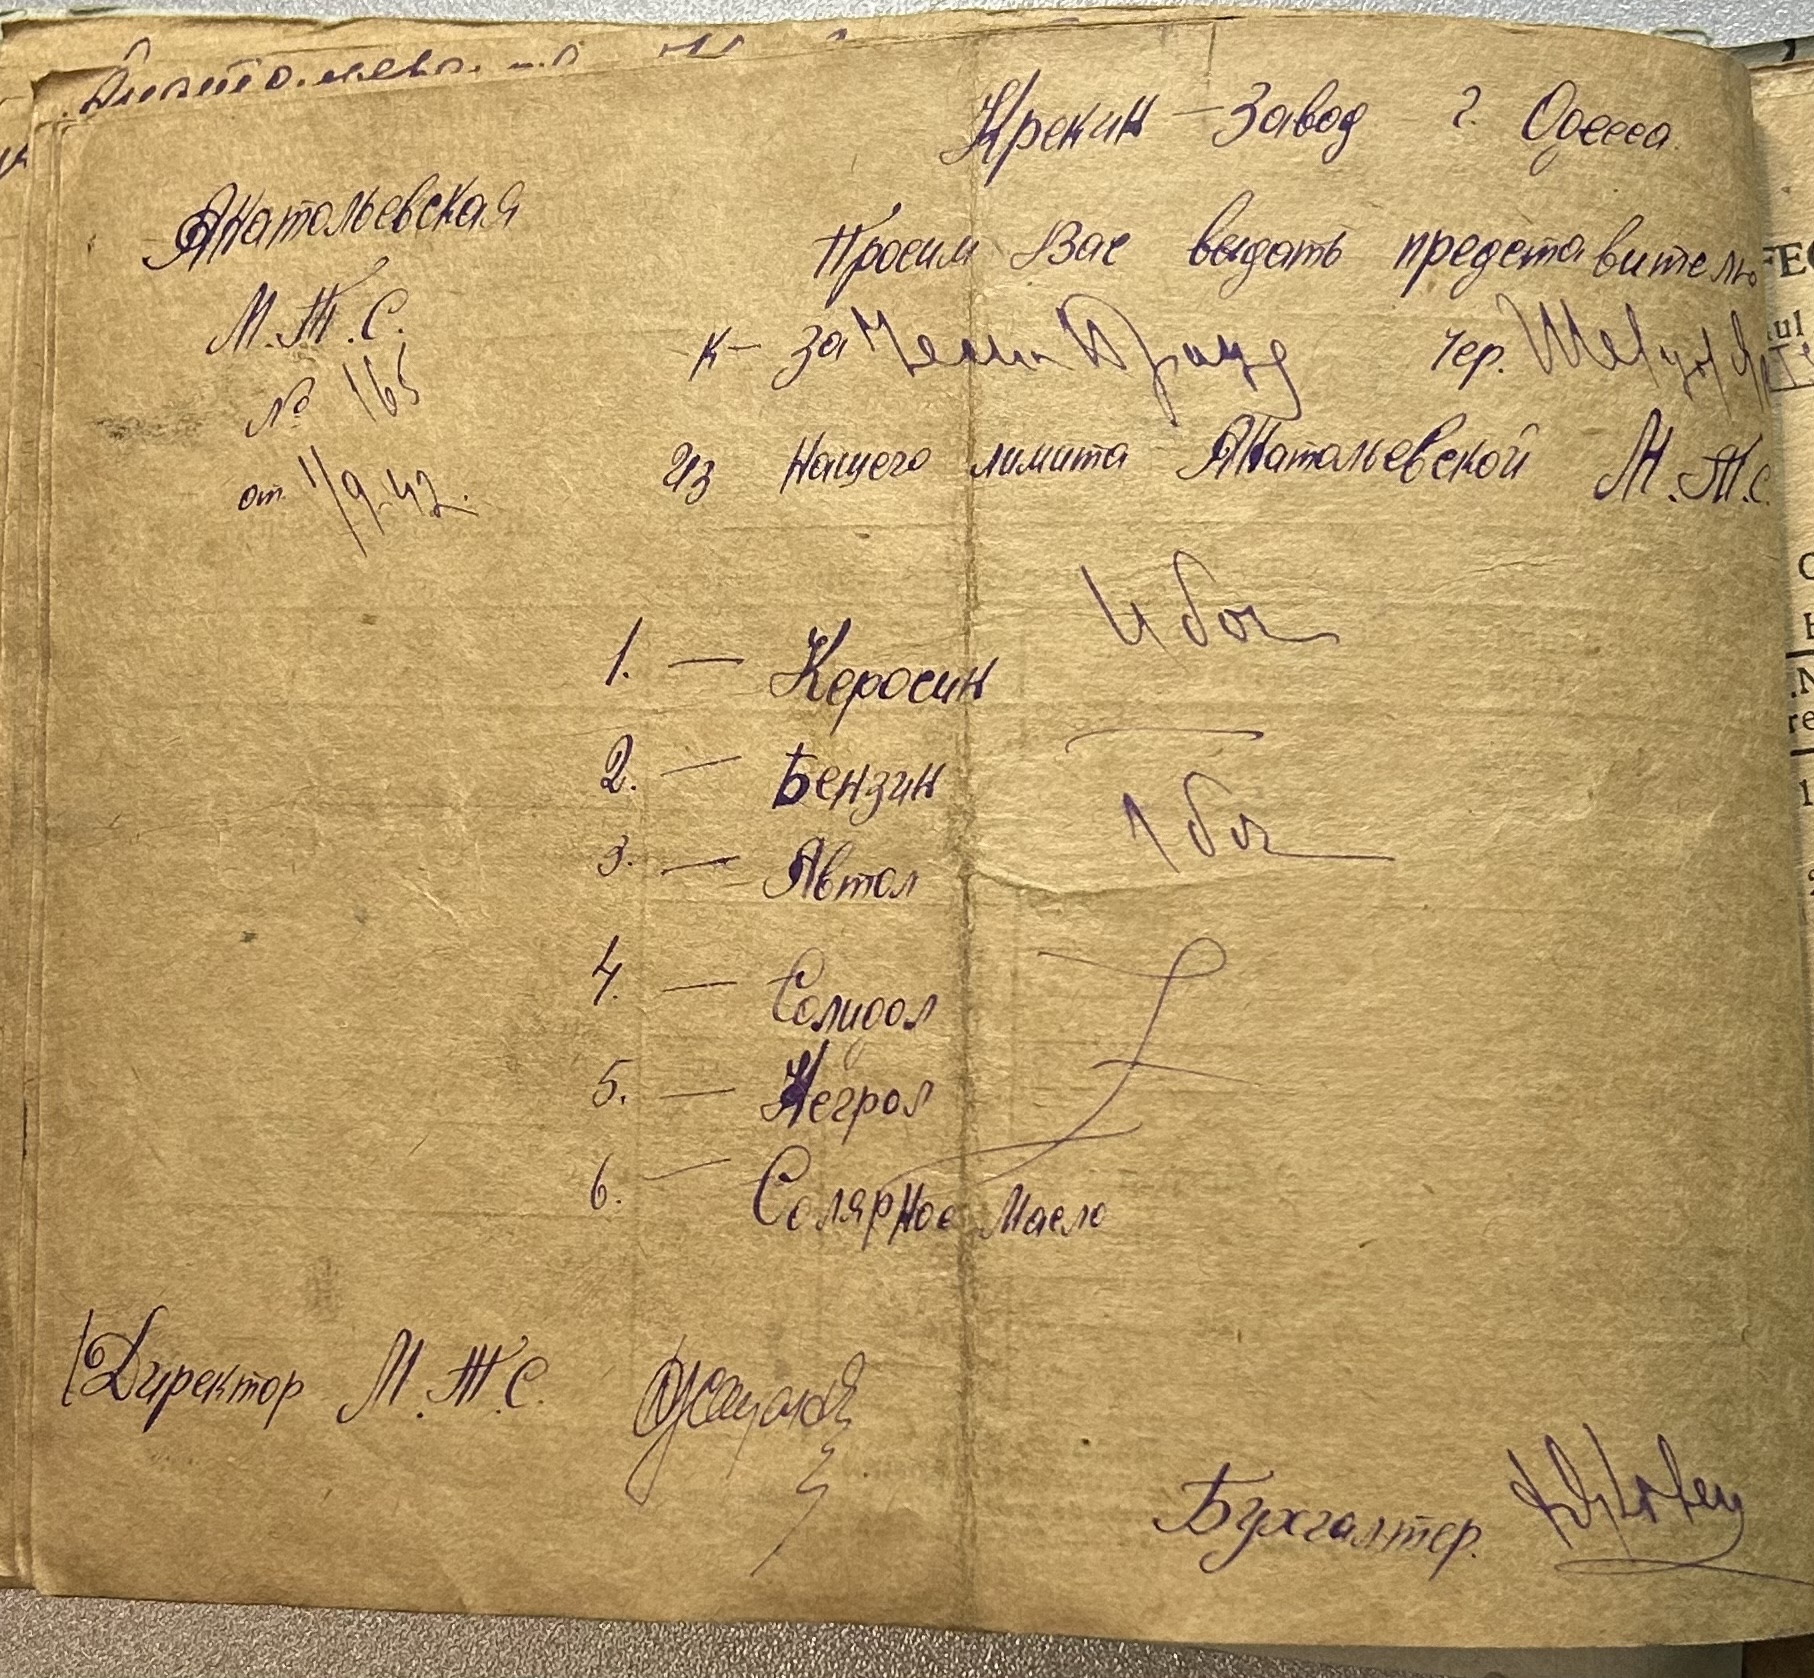 Крекин - Завод г. Одесса.
Анатольевская
М.Т.С.
№ 165
от 1/9-42.
Просим Вас выдать представителю
к-за чер.
из нашего лимита Анатольевской М.Т.С.
1. — Керосин 4 боч
2. — Бензин —
3. — Автол 1 боч
4. — Солидол
5. — Негрол
6. — Солярное масло
Директор М.Т.С.
Бухгалтер.